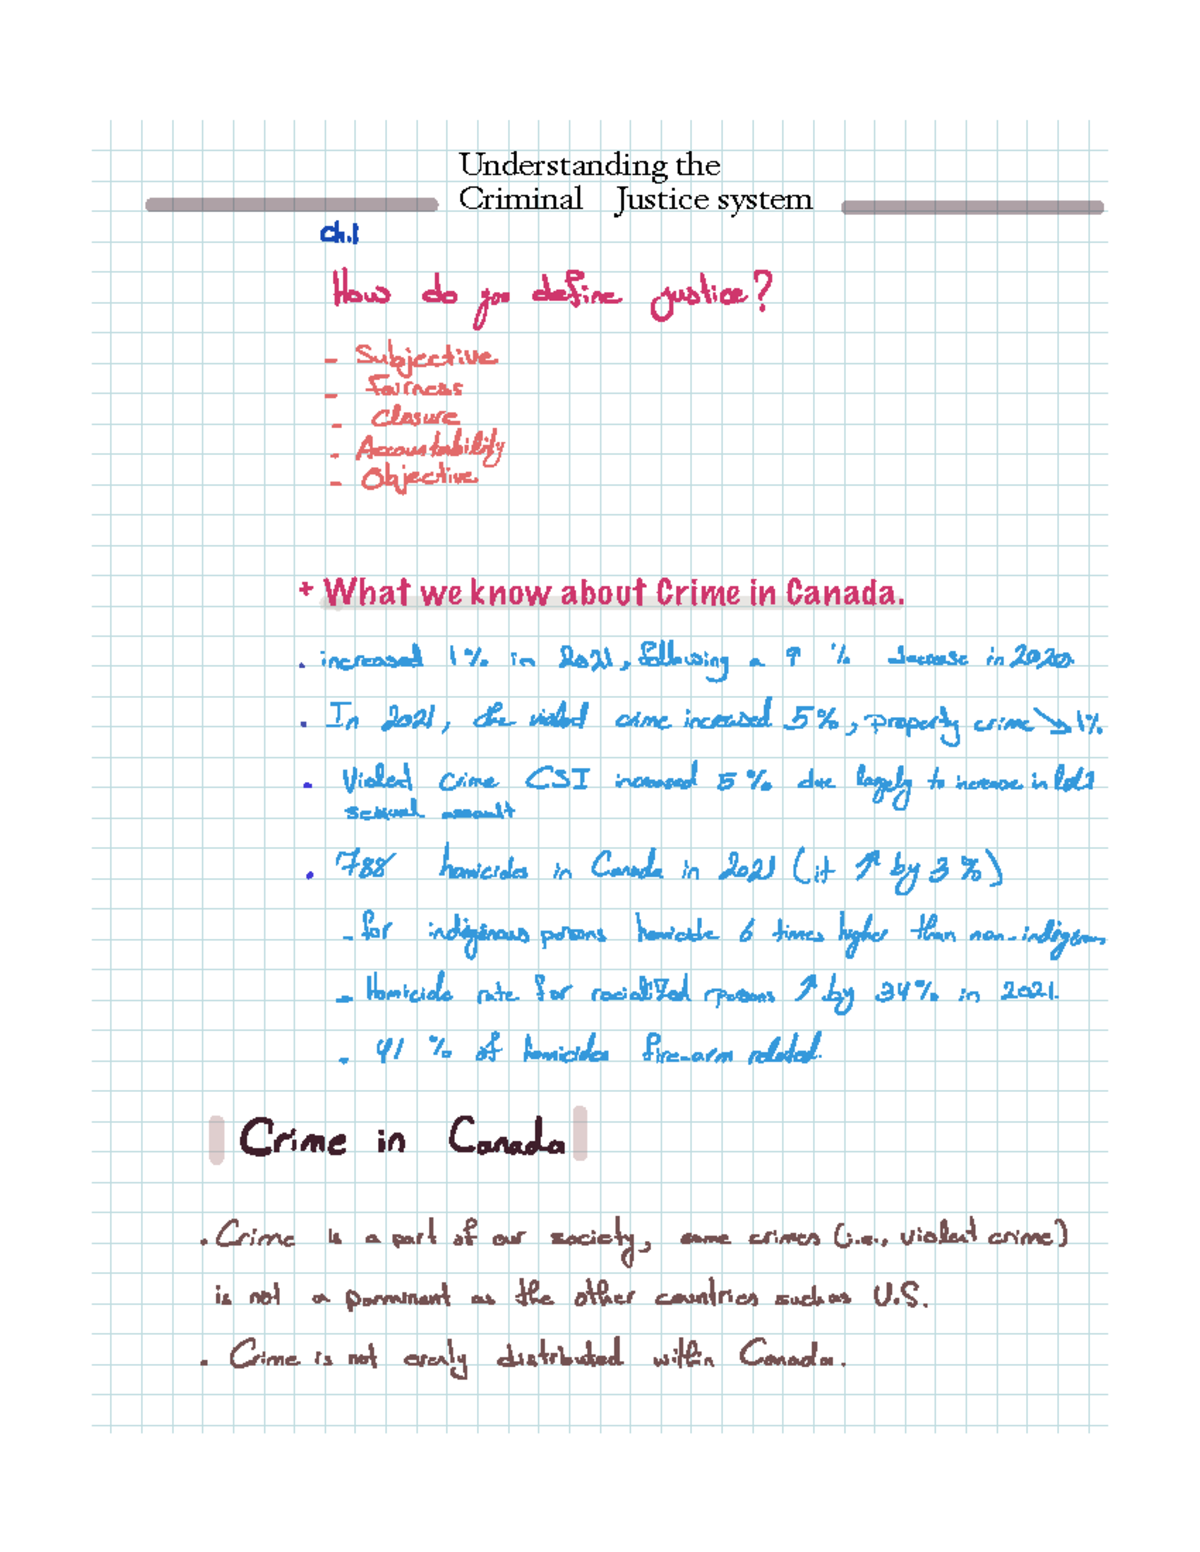 Understanding the
Criminal Justice system
Ch.1
How do you define justice?
- Subjective
- Fairness
- Closure
- Accountability
- Objective
+ What we know about Crime in Canada.
. increased 1% in 2021, following a ↑ % decrease in 2020.
. In 2021, the violed crime increased 5%, property crime ↘ 1%
. Violed crime CSI increased 5% due largely to increase in
sexual assault
. 788 homicides in Canada in 2021 (it ↑ by 3%)
- for indigenous persons homicide 6 times higher than non-indigenous
- Homicide rate for racialized persons ↑ by 34% in 2021.
- 41 % of homicides fire-arm related.
Crime in Canada
. Crime is a part of our society, some crimes (i.e., violent crime)
is not a porminent as the other countries such as U.S.
. Crime is not evenly distributed within Canada.